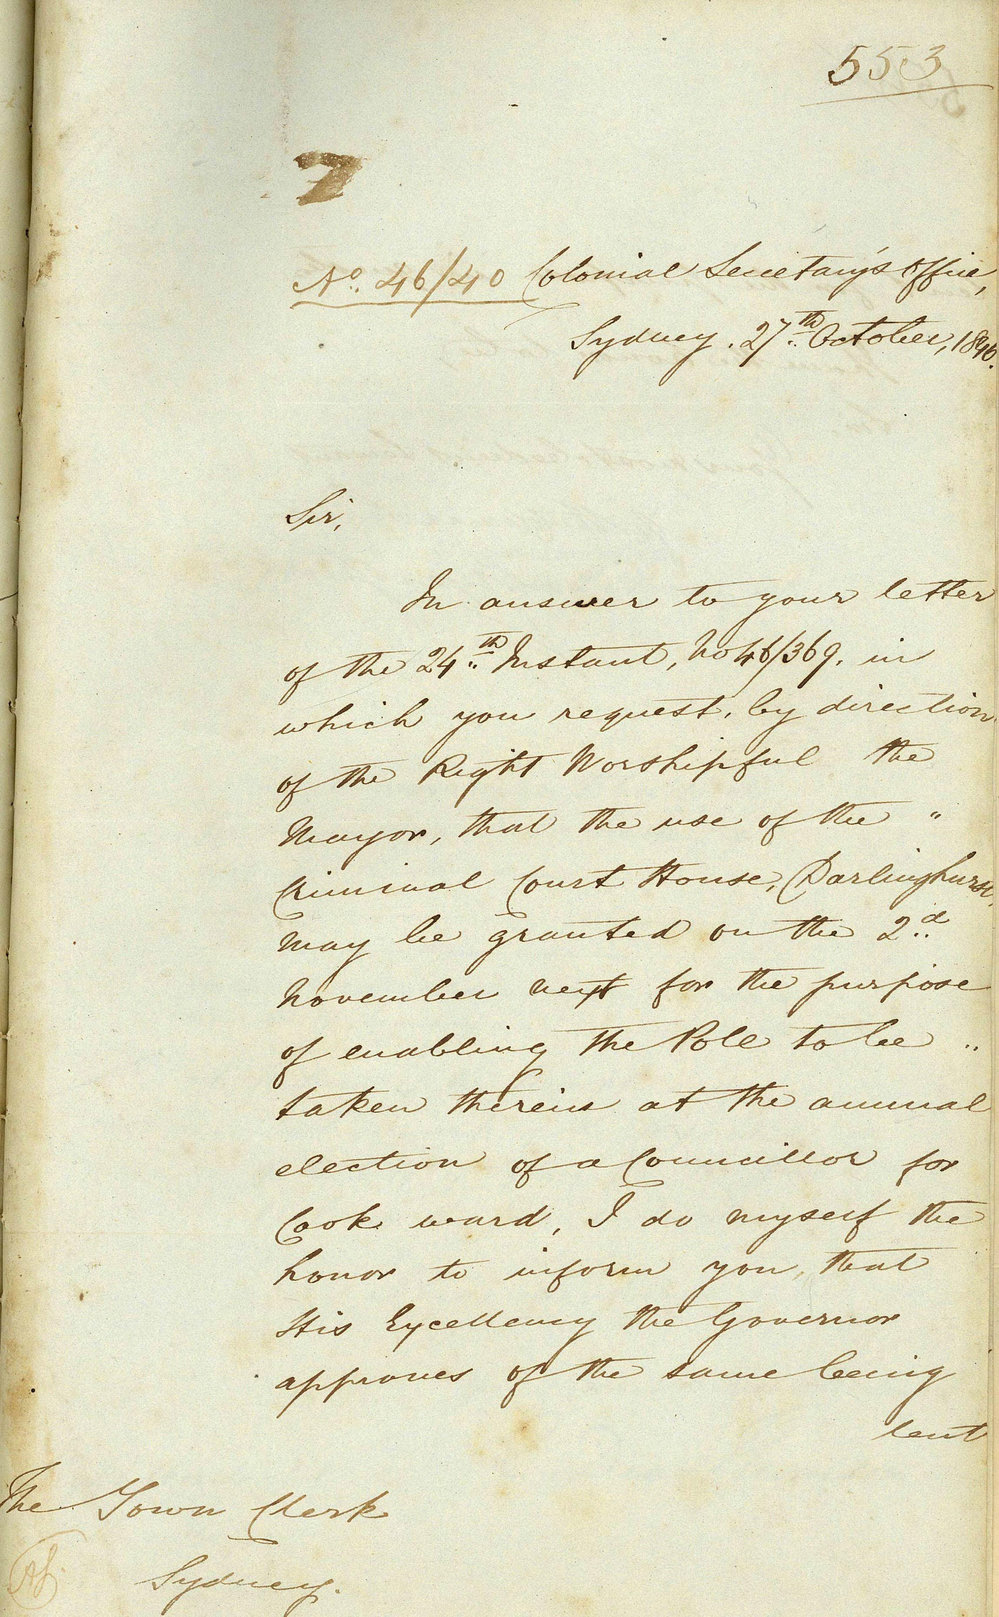 553
No. 46/40 Colonial Secretary's Office,
Sydney. 27th October, 1846.
Sir,
In answer to your letter
of the 24th Instant, No 46/369. in
which you request, by direction
of the Right Worshipful the
Mayor, that the use of the "
Criminal Court House, Darlinghurst,
may be granted on the 2d
November next for the purpose
of enabling the Pole to be ..
taken therein at the annual
election of a Councillor for
Cook ward, I do myself the
honor to inform you, that
His Excellency the Governor
approves of the same being
lent
The Town Clerk
Sydney.